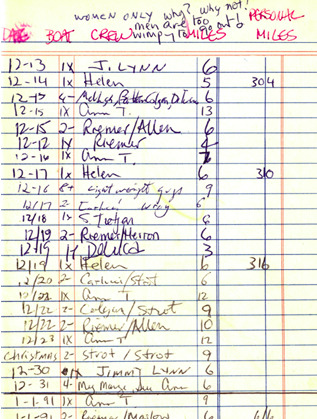 women only why? why not!
men are too
wimpy to go out!
DATE BOAT CREW MILES PERSONAL MILES
12-13 1x J. LYNN 6
12-14 1x Helen 5 304
12-15 4- 6
12-15 1x Ann T. 13
12-15 2- Riemer/Allen 6
12-12 1x Riemer 4
12-16 1x Ann T. 7
12-17 1x Helen 6 310
12-16 8+ light weight guys 9
12/17 2- way 6
12/18 1x 6
12/19 2- Riemer/Herron 6
12/19 1x DeLuca 3
12/19 1x Helen 6 316
12/20 2- /Strot 6
12/21 1x Ann T 12
12/22 2- /Strot 9
12/22 2- Riemer/Allen 10
12/23 1x Ann T 12
CHRISTMAS 2- Strot/Strott 9
12-30 1x JIMMY LYNN 6
12-31 4- Ann 6
1-1-91 1x Ann T 9
1-1-91 2- Riemer/Maslow 6/6